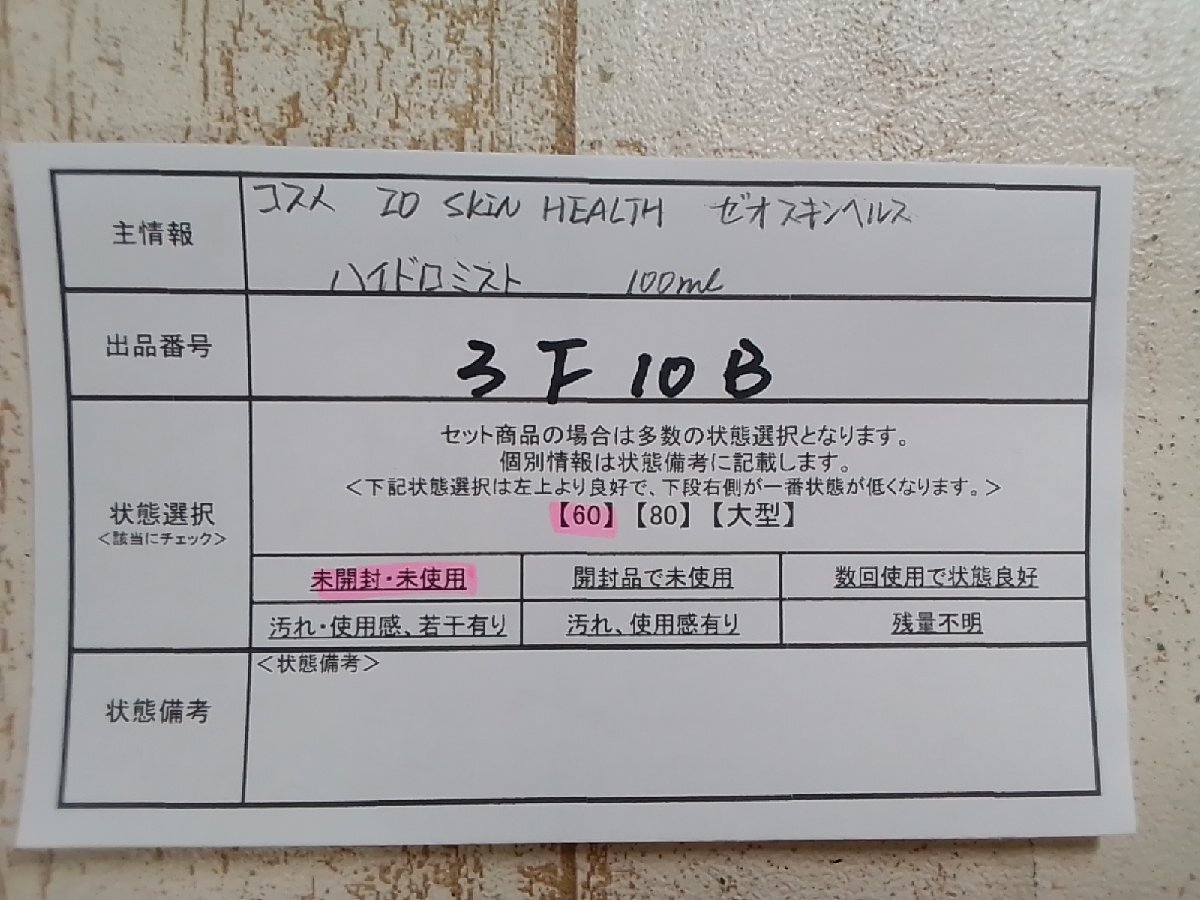 主情報
コスメ ZO SKIN HEALTH ゼオスキンヘルス
ハイドロミスト 100ml
出品番号
3F10B
状態選択
<該当にチェック>
セット商品の場合は多数の状態選択となります。
個別情報は状態備考に記載します。
<下記状態選択は左上より良好で、下段右側が一番状態が低くなります。>
【60】【80】【大型】
未開封・未使用 開封品で未使用 数回使用で状態良好
汚れ・使用感、若干有り 汚れ、使用感有り 残量不明
状態備考
<状態備考>